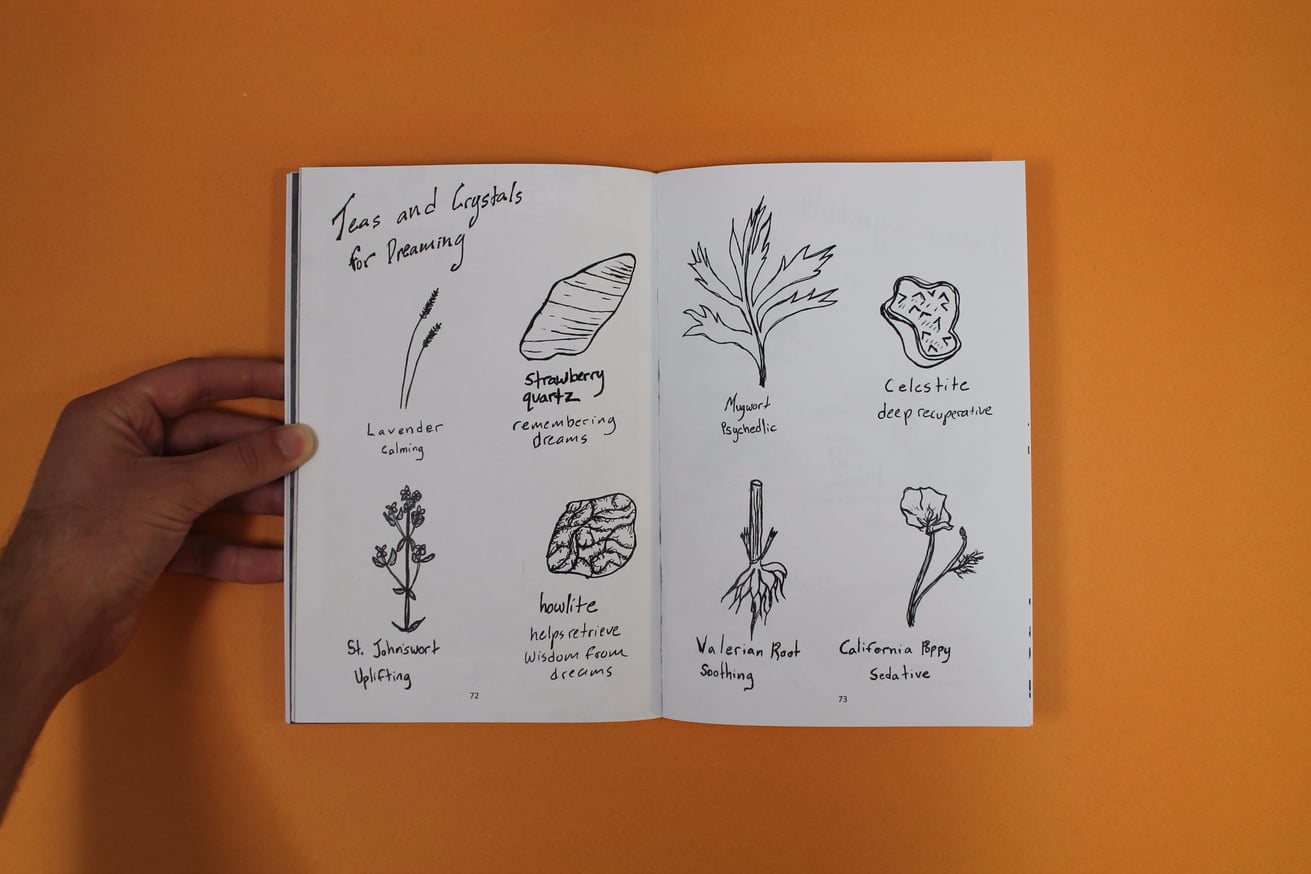 Teas and Crystals
for Dreaming
Lavender
Calming
strawberry
quartz
remembering
dreams
St. Johnswort
Uplifting
howlite
helps retrieve
wisdom from
dreams
72
Mugwort
Psychedlic
Celestite
deep recuperative
Valerian Root
Soothing
California Poppy
Sedative
73